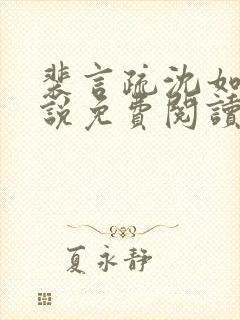 裴言疏沈如
說免費閱讀
夏永靜